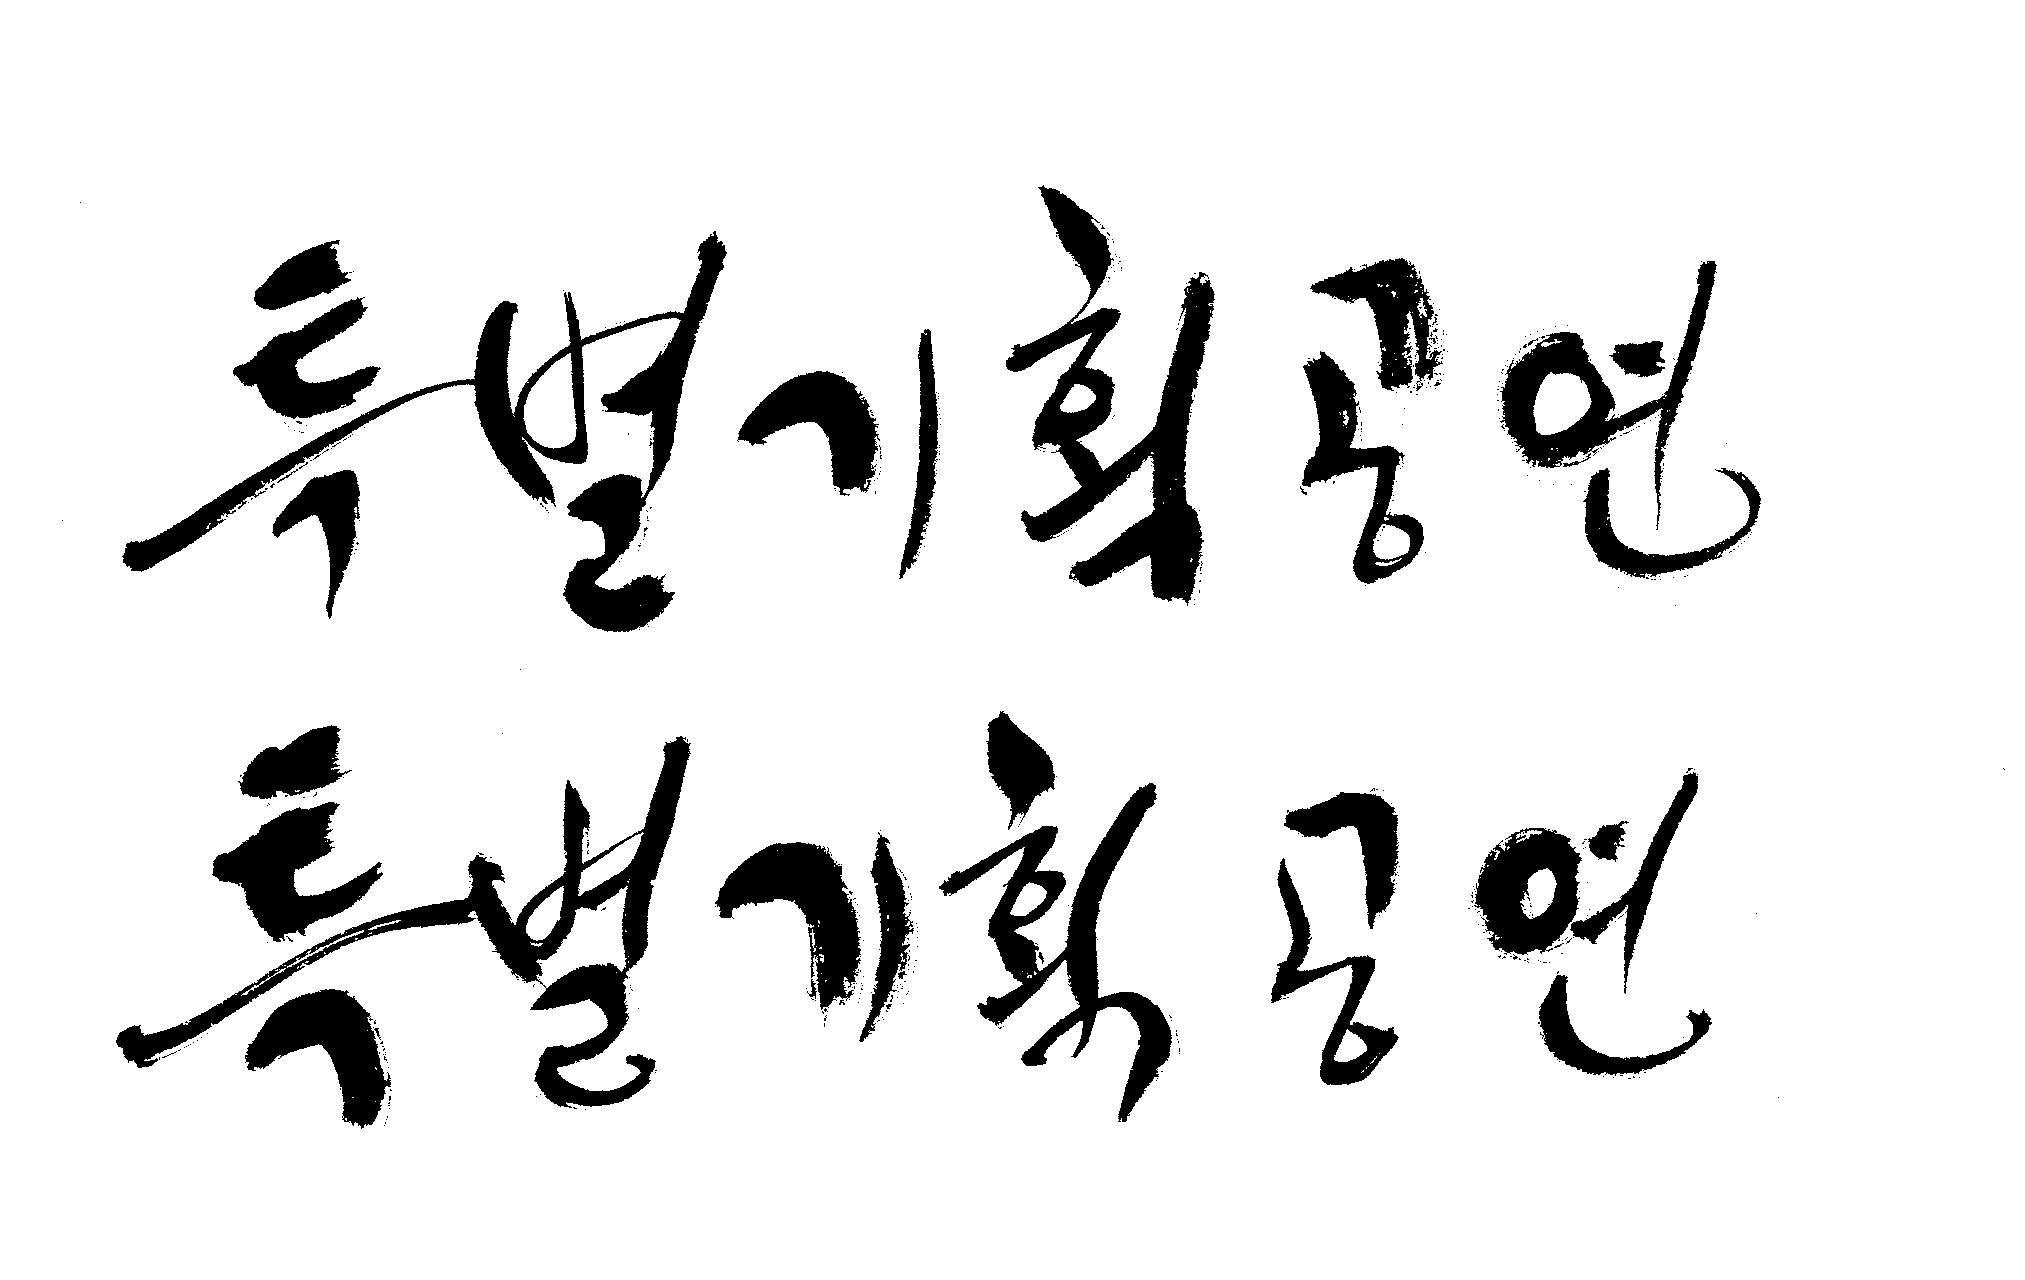 특별기획공연
특별기획공연